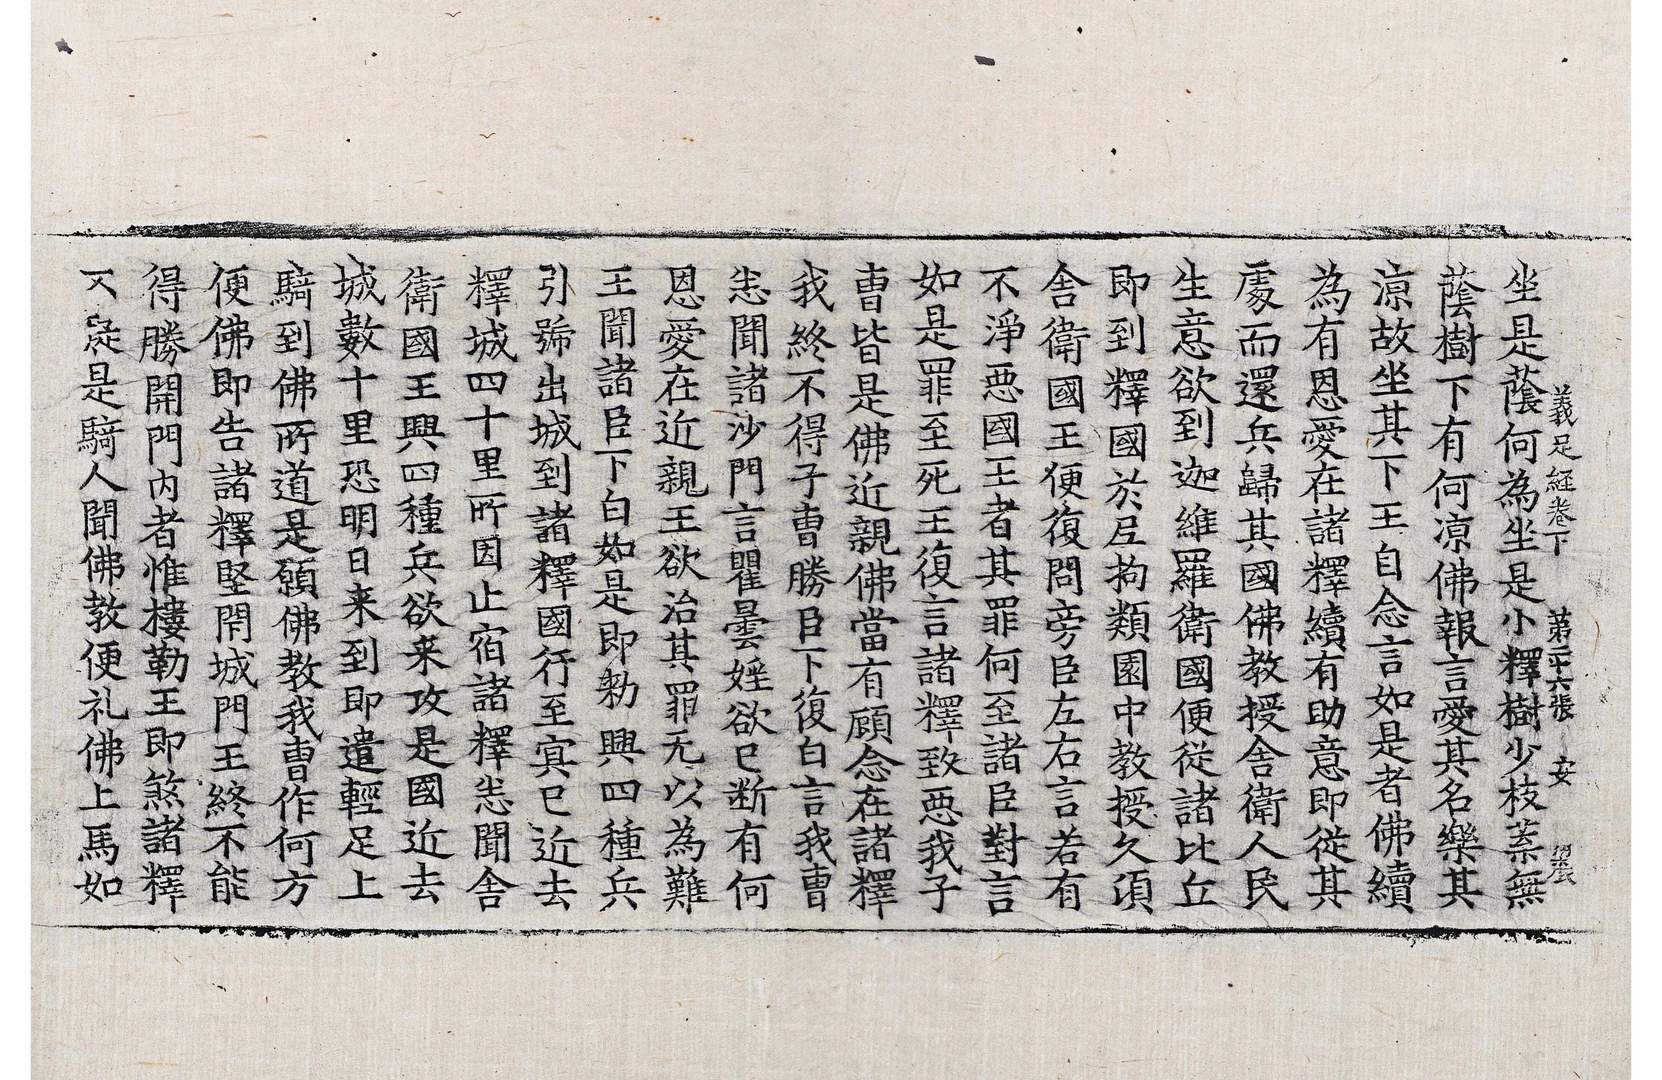 義足経卷下　第二十六張　安
坐是蔭何為坐是小釋樹少枝葉無
蔭樹下有何涼佛報言愛其名樂其
涼故坐其下王自念言如是者佛續
為有恩愛在諸釋續有助意即從其
處而還兵歸其國佛教授舍衛人民
生意欲到迦維羅衛國便從諸比丘
即到釋國於𡰱拘類園中教授久湏
舎衛國王便復問旁臣左右言若有
不淨惡國王者其罪何至諸臣對言
如是罪至死王復言諸釋致惡我子
曹皆是佛近親佛當有顧念在諸釋
我終不得子曹勝臣下復白言我曹
悉聞諸沙門言瞿曇婬欲已断有何
恩愛在近親王欲治其罪无以為難
王聞諸臣下白如是即勑興四種兵
引號出城到諸釋國行至冥已近去
釋城四十里所因止宿諸釋悉聞舎
衛國王興四種兵欲来攻是國近去
城數十里恐明日来到即遣輕足上
騎到佛所道是願佛教我曹作何方
便佛即告諸釋堅閇城門王終不能
得勝開門内者惟樓勒王即煞諸釋
又從是騎人聞佛教便礼佛上馬如